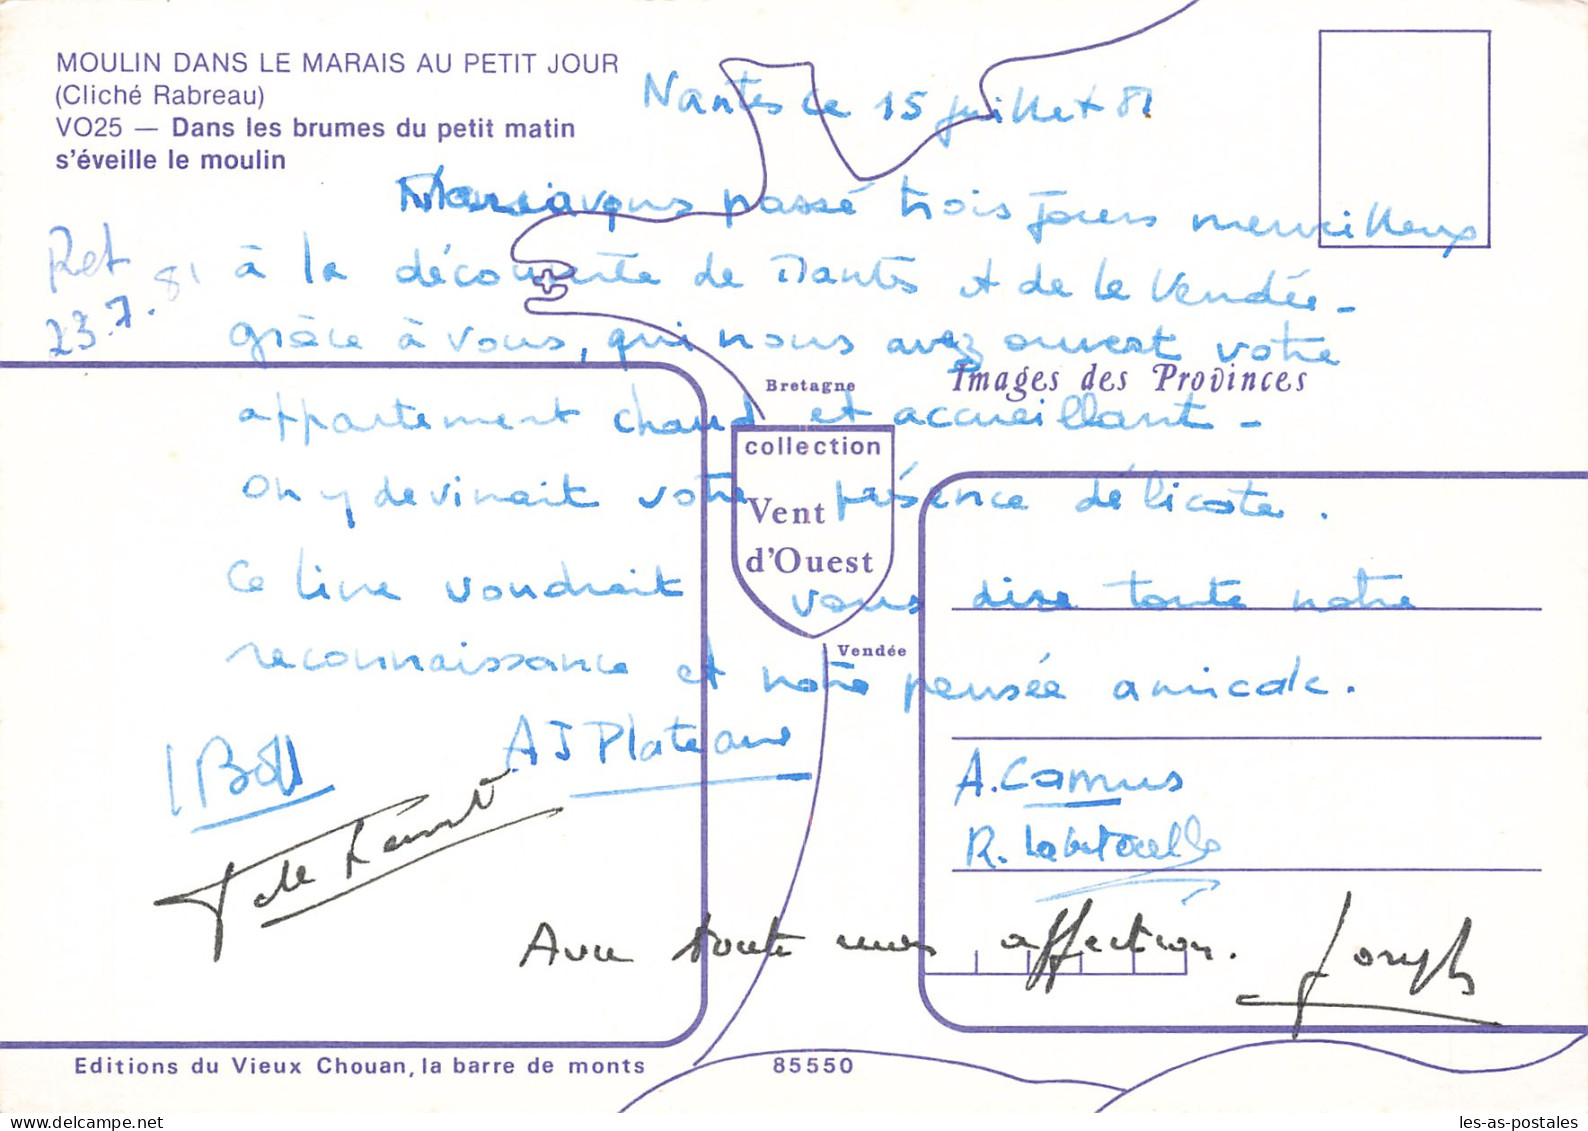 MOULIN DANS LE MARAIS AU PETIT JOUR
(Cliché Rabreau)
VO25 — Dans les brumes du petit matin
s'éveille le moulin
Nantes ce 15 juillet 81
Ret
23.7.81
Nous avons passé trois jours merveilleux
à la découverte de Nantes et de la Vendée -
grâce à vous, qui nous avez ouvert votre
appartement chaud et accueillant -
on y devinait votre présence délicate.
Ce livre voudrait vous dire toute notre
reconnaissance et notre pensée amicale.
Bretagne
Images des Provinces
collection
Vent
d'Ouest
Vendée
AJ Plateaux
A. Camus
R.
Avec toute mon affection. Joseph
Editions du Vieux Chouan, la barre de monts
85550
les-as-postales